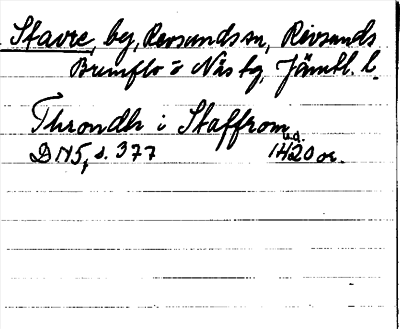 Stavre, by, Revsunds sn, Revsunds
Brunflo o Näs tg, Jämtl. l.
Throndh i Staffrom
u.d.
DN5, s. 377 1420 or.